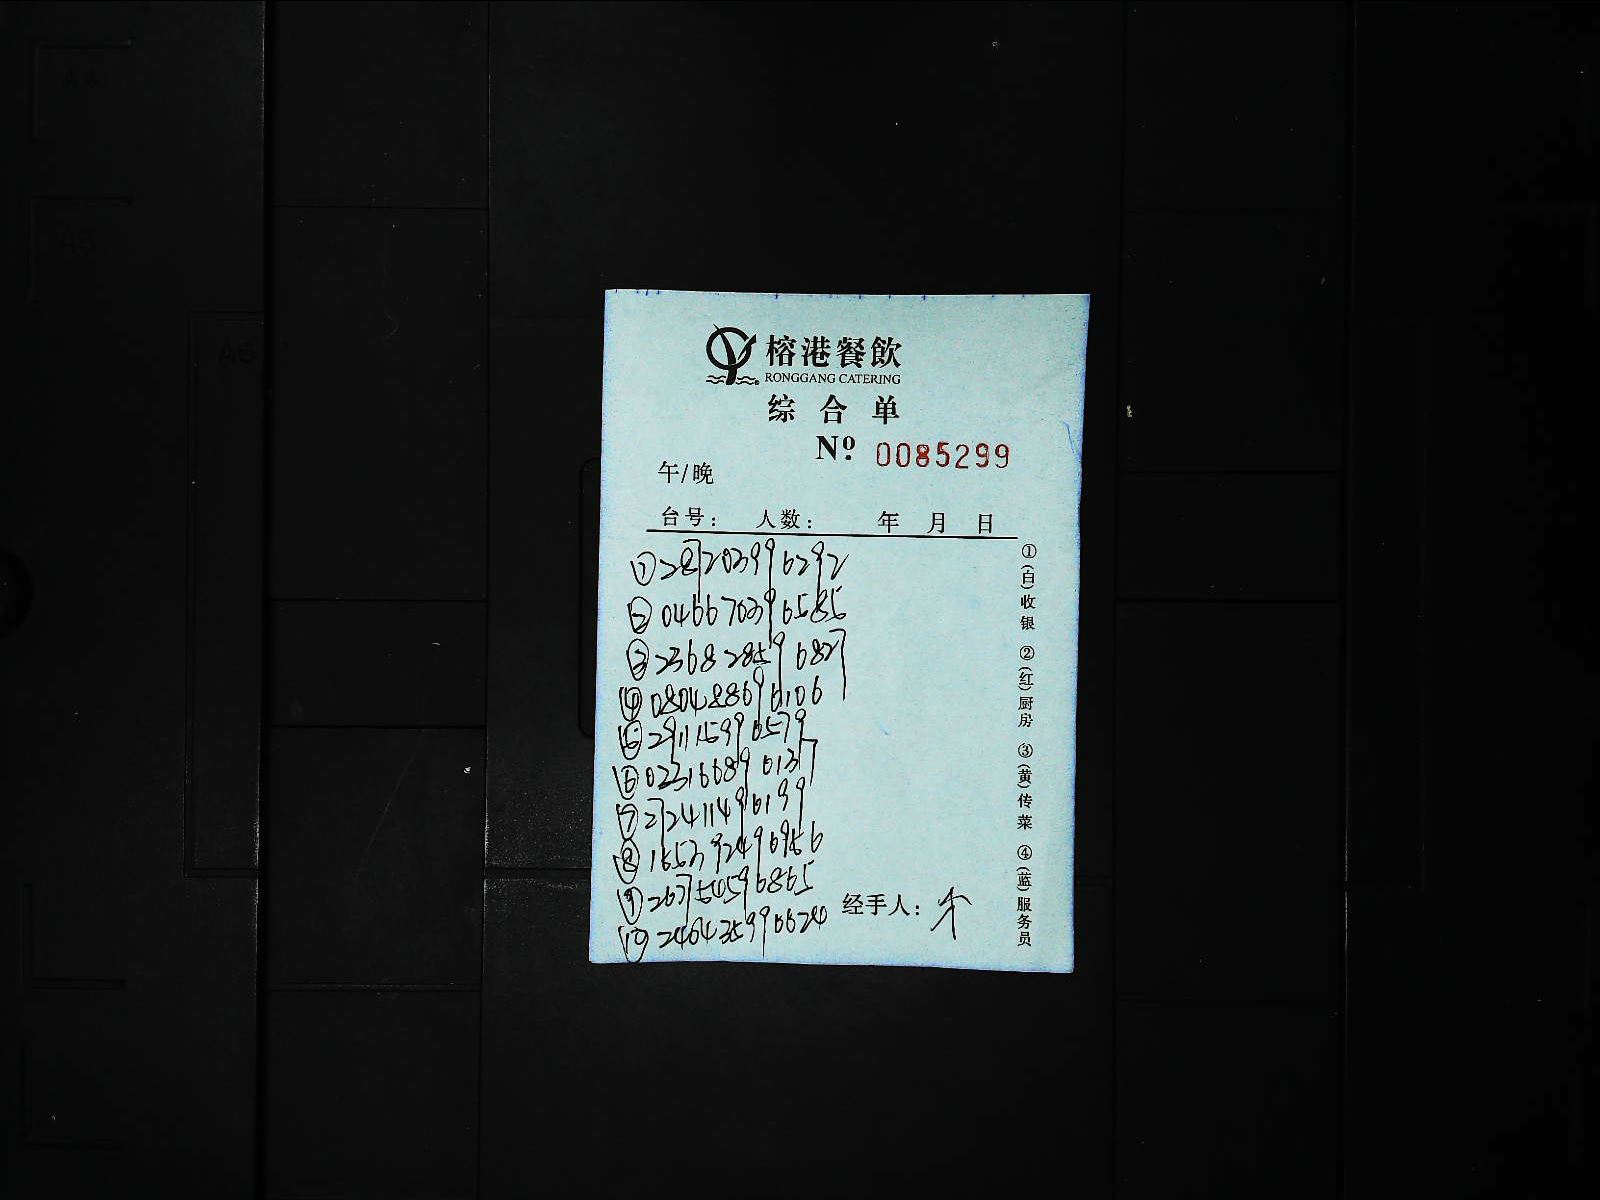 榕港餐飲
RONGGANG CATERING
综合单
Nº 0085299
午/晚
台号： 人数： 年 月 日
①287203996292
②046670396585
③236828596827
④080488696106
⑤291115996579
⑥023166896137
⑦272411496199
⑧165392496956
⑨267540596865
⑩246435996624
经手人：
①(白)收银 ②(红)厨房 ③(黄)传菜 ④(蓝)服务员
A4
A5
A6